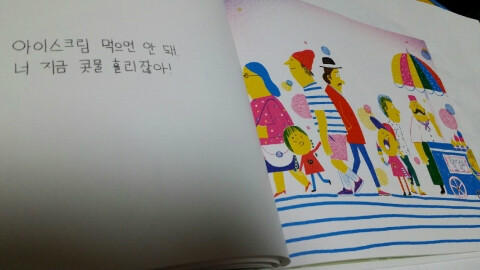 아이스크림 먹으면 안 돼
너 지금 콧물 흘리잖아!